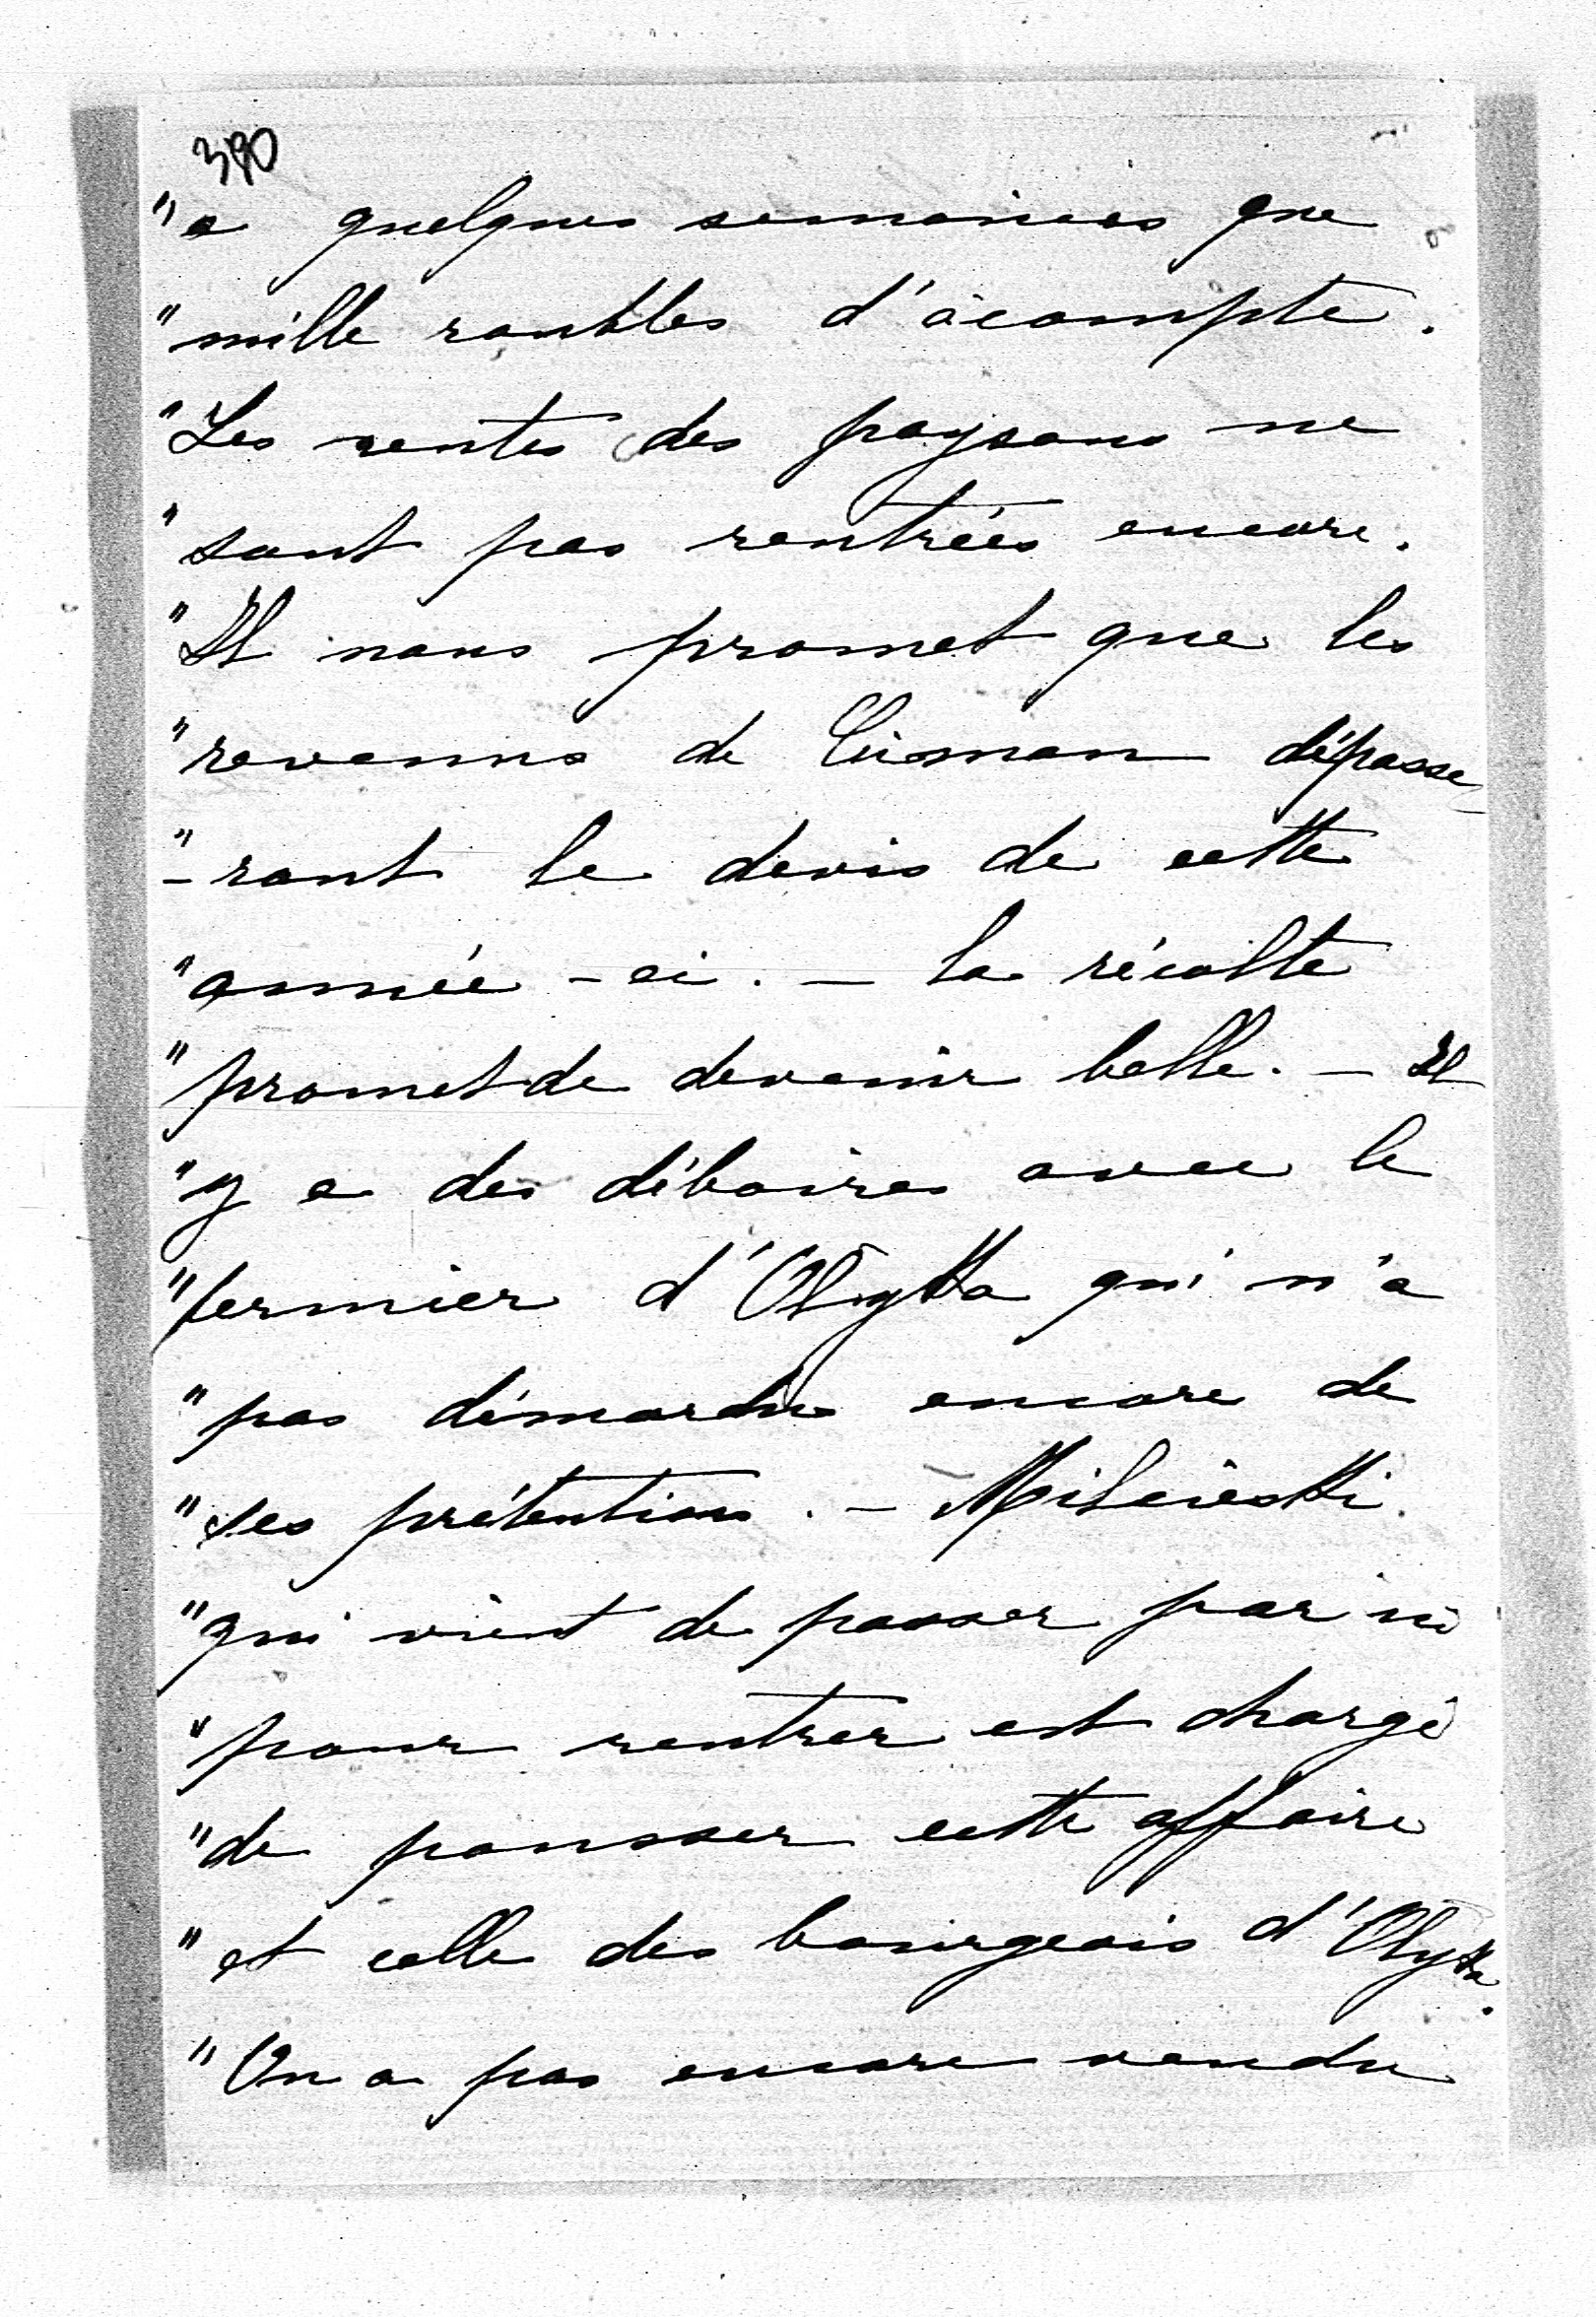 390
"a quelques semaines que
"mille roubles d'àcompte.
"Les rentes des paysans ne
"sont pas rentrées encore.
"Il nous promet que les
"revenus de Cùsman dépasse
"-ront le devis de cette
"année-ci. - La récolte
"promet de devenir belle. - Il
"y a des déboires avec le
"fermier d'Olytta qui n'a
"pas démordu encore de
"ses prétentions. -
"qui vient de passer par ici
"pour rentrer est chargé
"de pousser cette affaire
"et celle des bourgeois d'Olytta.
"On a pas encore vendu